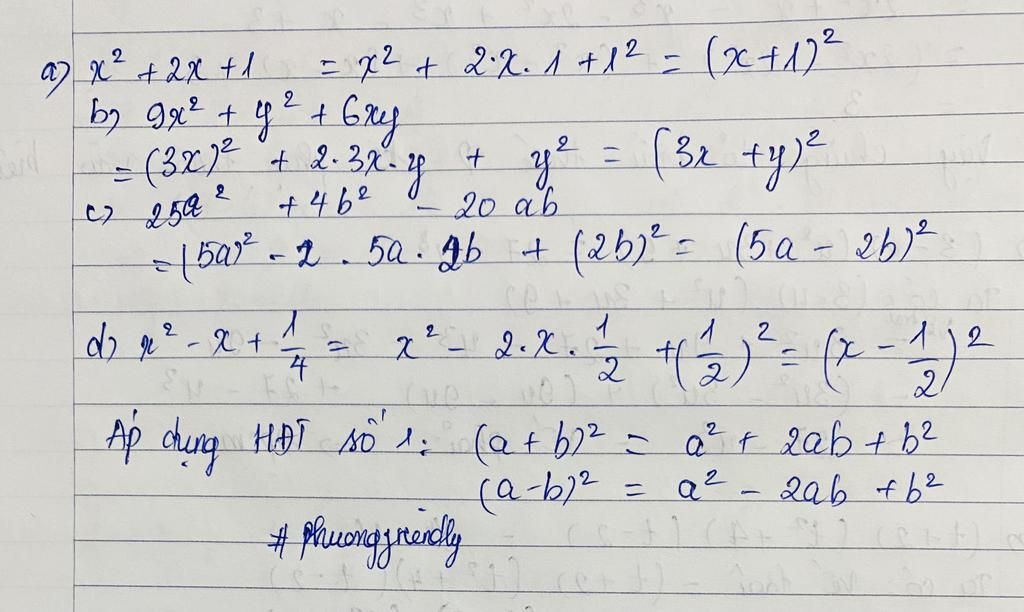 a) x² + 2x + 1 = x² + 2·x·1 + 1² = (x+1)²
b) 9x² + y² + 6xy
= (3x)² + 2·3x·y + y² = (3x + y)²
c) 25a² + 4b² - 20ab
= (5a)² - 2 . 5a . 2b + (2b)² = (5a - 2b)²
d) x² - x + 1/4 = x² - 2·x·1/2 + (1/2)² = (x - 1/2)²
Áp dụng HĐT số 1: (a + b)² = a² + 2ab + b²
(a-b)² = a² - 2ab + b²
# phuongfriendly